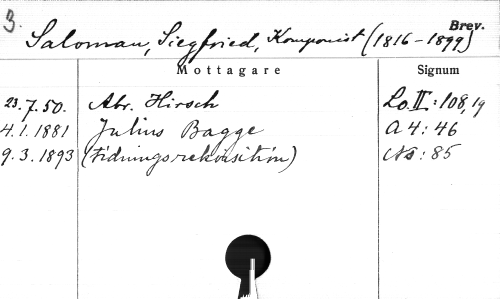 3.
Brev.
Saloman, Siegfried, Komponist (1816-1899)
Mottagare Signum
23.7.50. Abr. Hirsch Lo.II:108,19
4.1.1881 Julius Bagge A 4:46
9.3.1893 (Tidningsrekvisition) :85